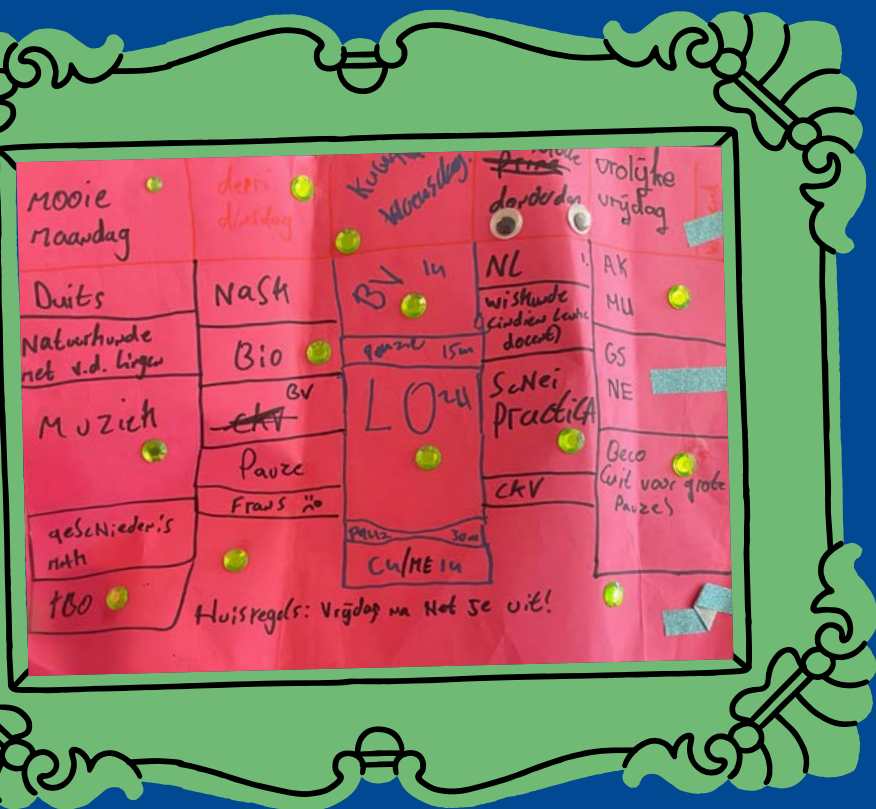 Mooie
Maandag
Duits
Natuurkunde
met v.d. Lingen
Muziek
geschiedenis
math
tBO
depri
dinsdag
Nask
Bio
BV
CKV
Pauze
Frans
Woensdag
BV 1u
pauze 15m
LO 2u
pauz 30m
CU/ME 1u
donderdag
NL
wiskunde
(indien leuke
docent)
ScHei
PracticA
CKV
vrolijke
vrijdag
AK
MU
GS
NE
Beco
(uit voor grote
Pauze)
Huisregels: Vrijdag na Net 5e uit!